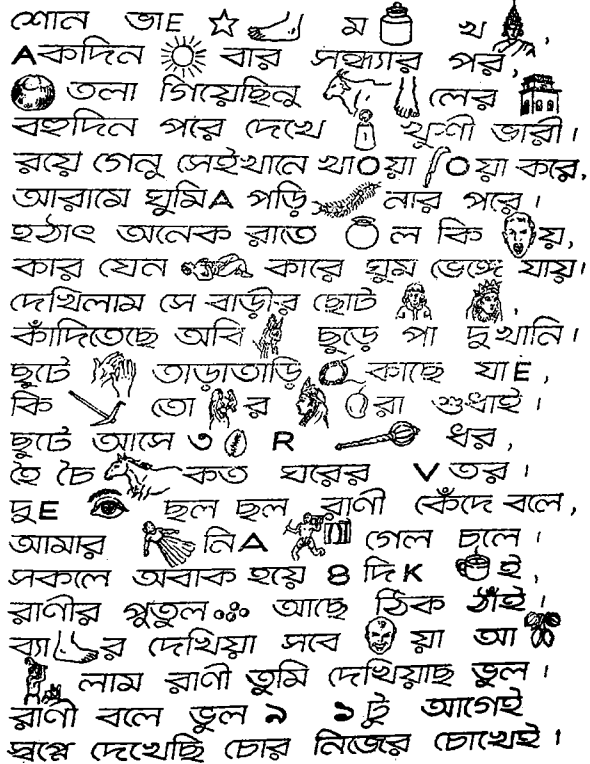 শোন ভাE ম খ ,
Aকদিন বার সন্ধ্যার পর,
তলা গিয়েছিনু লের
বহুদিন পরে দেখে খুশী ভারী।
রয়ে গেনু সেইখানে খাOয়া Oয়া করে,
আরামে ঘুমিA পড়ি নার পরে।
হঠাৎ অনেক রাতে ল কি য়,
কার যেন কারে ঘুম ভেঙ্গে যায়।
দেখিলাম সে বাড়ীর ছোট ,
কাঁদিতেছে অবি ছুড়ে পা দুখানি।
ছুটে তাড়াতাড়ি কাছে যাE,
কি তো র রা শুধাই।
ছুটে আসে ৩ R ধর,
হৈ চৈ কত ঘরের Vতর।
দুE ছল ছল রাণী কেঁদে বলে,
আমার নিA গেল চলে।
সকলে অবাক হয়ে 8 দিK ই,
রাণীর পুতুল আছে ঠিক ঠাঁই।
ব্যা র দেখিয়া সবে য়া আ
লাম রাণী তুমি দেখিয়াছ ভুল।
রাণী বলে ভুল ৯ ১টু আগেই
স্বপ্নে দেখেছি চোর নিজের চোখেই।